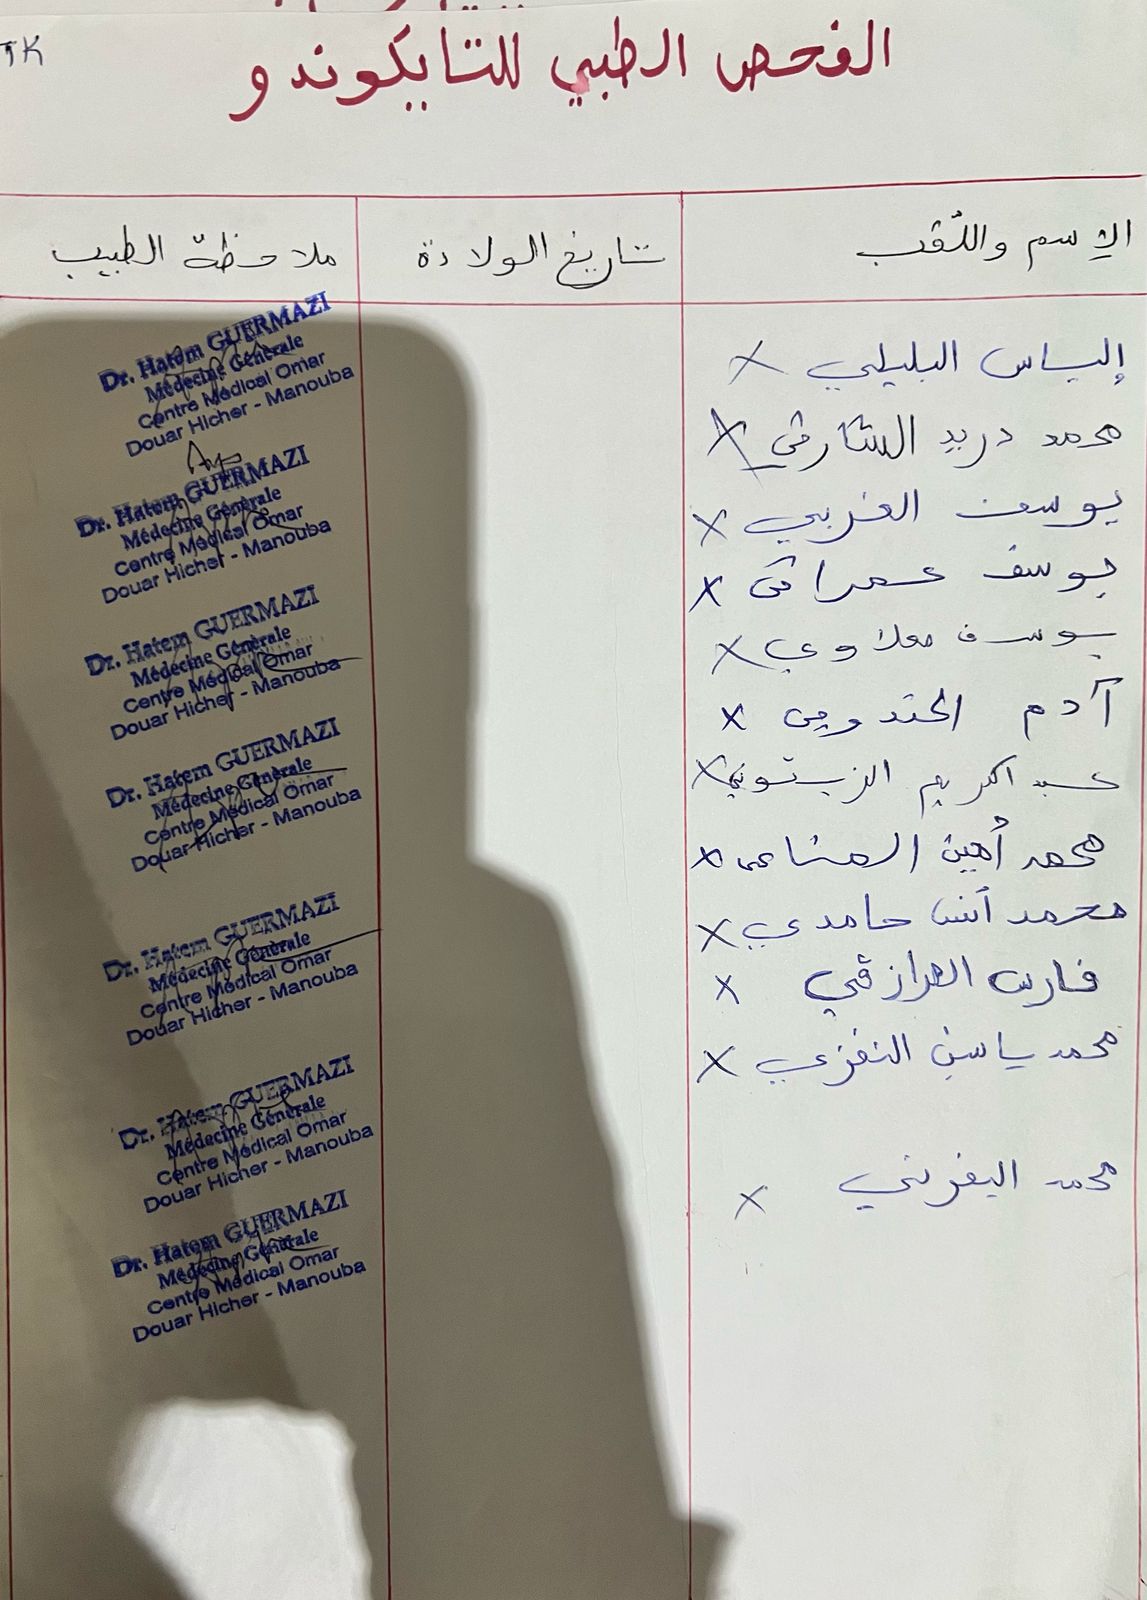 TK
الفحص الطبي للتايكوندو
الإسم واللّقب
تاريخ الولادة
ملاحظة الطبيب
إلياس البليلي X
محمد دريد الشارفي X
يوسف الغربي X
يوسف عمراني X
يوسف معلاوي X
آدم X
عبد الكريم الزيتوني X
محمد أمين المناعي X
محمد أنس حامدي X
فارس X
محمد ياسين النفزي X
محمد اليفرني X
Dr. Hatem GUERMAZI
Médecine Générale
Centre Médical Omar
Douar Hicher - Manouba
Dr. Hatem GUERMAZI
Médecine Générale
Centre Médical Omar
Douar Hicher - Manouba
Dr. Hatem GUERMAZI
Médecine Générale
Centre Médical Omar
Douar Hicher - Manouba
Dr. Hatem GUERMAZI
Médecine Générale
Centre Médical Omar
Douar Hicher - Manouba
Dr. Hatem GUERMAZI
Médecine Générale
Centre Médical Omar
Douar Hicher - Manouba
Dr. Hatem GUERMAZI
Médecine Générale
Centre Médical Omar
Douar Hicher - Manouba
Dr. Hatem GUERMAZI
Médecine Générale
Centre Médical Omar
Douar Hicher - Manouba